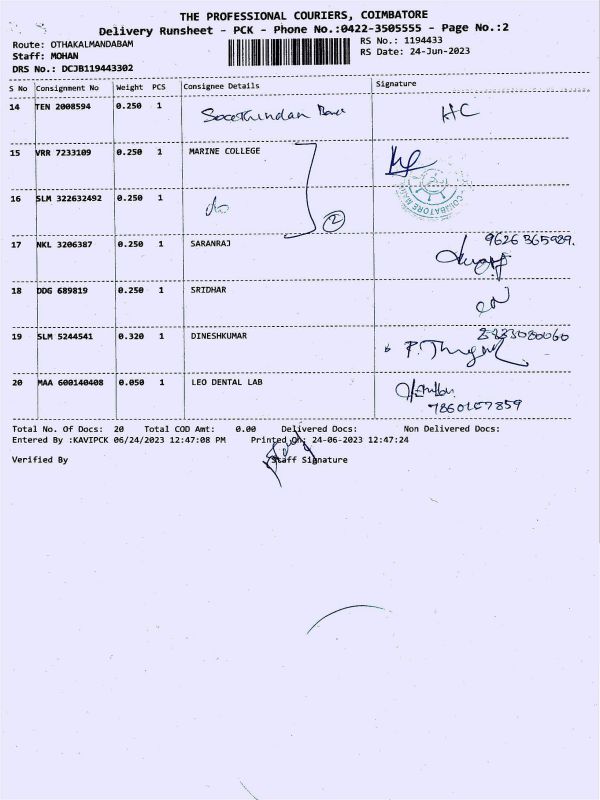 THE PROFESSIONAL COURIERS, COIMBATORE
Delivery Runsheet - PCK - Phone No.:0422-3505555 - Page No.:2
Route: OTHAKALMANDABAM
RS No.: 1194433
Staff: MOHAN
RS Date: 24-Jun-2023
DRS No.: DCJB119443302
S No Consignment No Weight PCS Consignee Details Signature
14 TEN 2008594 0.250 1
15 VRR 7233109 0.250 1 MARINE COLLEGE
16 SLM 322632492 0.250 1 do
2
COIMBATORE
17 NKL 3206387 0.250 1 SARANRAJ
18 DDG 689819 0.250 1 SRIDHAR
19 SLM 5244541 0.320 1 DINESHKUMAR
20 MAA 600140408 0.050 1 LEO DENTAL LAB
Total No. Of Docs: 20 Total COD Amt: 0.00 Delivered Docs: Non Delivered Docs:
Entered By :KAVIPCK 06/24/2023 12:47:08 PM Printed On: 24-06-2023 12:47:24
Verified By Staff Signature